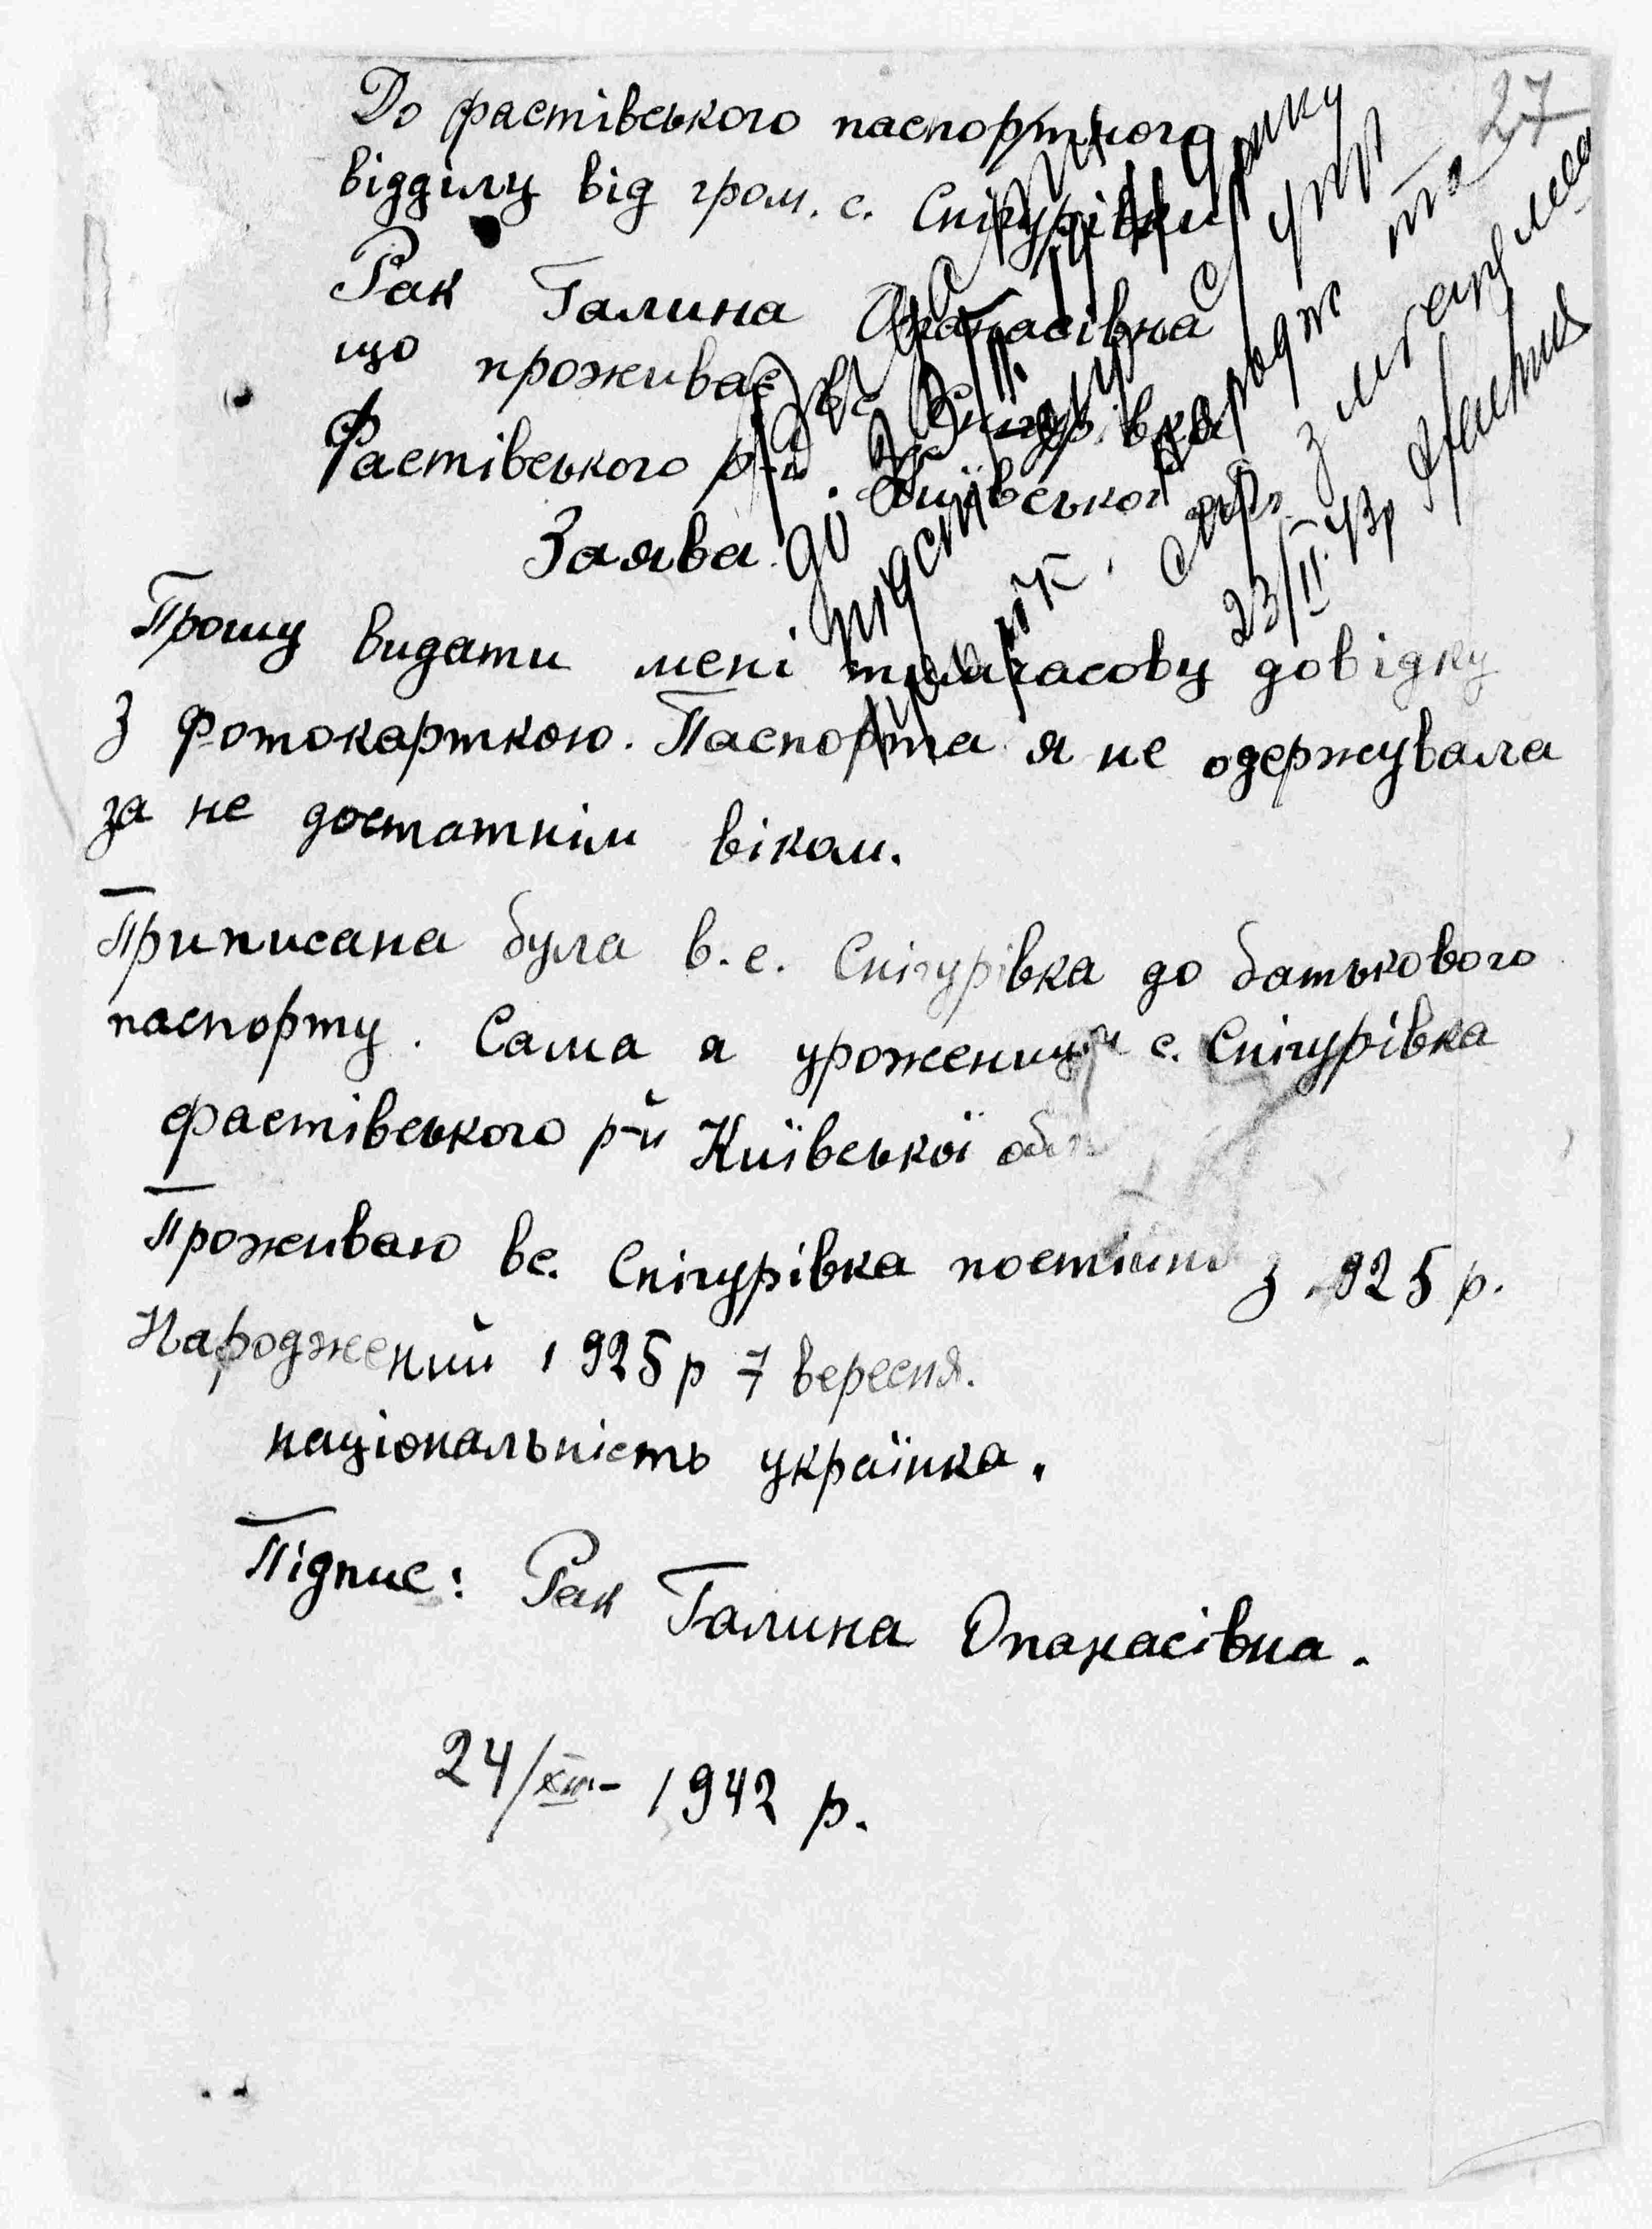 27
До фастівського паспортного
відділу від гром. с. Снігурівки
Рак Галина Опанасівна
що проживає в с. Снігурівка
Фастівського р-й. Київської
Заява.
Прошу видати мені тимчасову довідку
з фотокарткою. Паспорта я не одержувала
за не достатнім віком.
Приписана була в. с. Снігурівка до батькового
паспорту. Сама я уроженица с. Снігурівка
фастівського р-й Київської обл
Проживаю вс. Снігурівка постійно з 1925 р.
Народжений 1925 р 7 вересня.
національність українка.
Підпис: Рак Галина Опанасівна.
24/XII- 1942 р.
23/II 43р